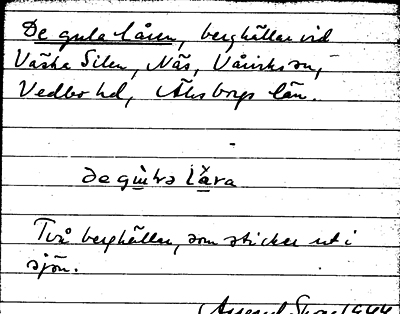 De gula låren, berghällar vid
Västra Silen, Näs, Vårviks sn,
Vedbo hd, Älvsborgs län.
Två berghällar, som sticker ut i
sjön.